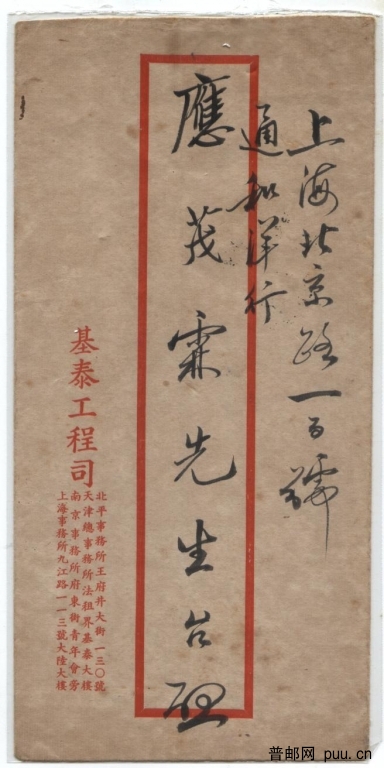 上海北京路一百號
通和洋行
應茂霖先生台啟
基泰工程司
北平事務所王府井大街一三〇號
天津總事務所法租界基泰大樓
南京事務所府東街青年會旁
上海事務所九江路一一三號大陸大樓
普邮网 puu.cn